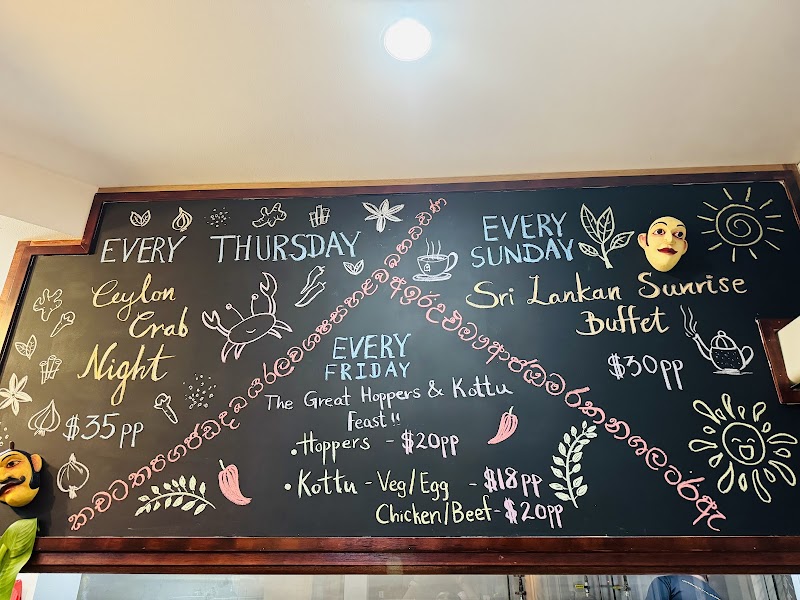 EVERY THURSDAY
Ceylon
Crab
Night
$35 pp
EVERY
FRIDAY
The Great Hoppers & Kottu
Feast!!
• Hoppers - $20pp
• Kottu - Veg/Egg - $18pp
Chicken/Beef - $20pp
EVERY
SUNDAY
Sri Lankan Sunrise
Buffet
$30pp